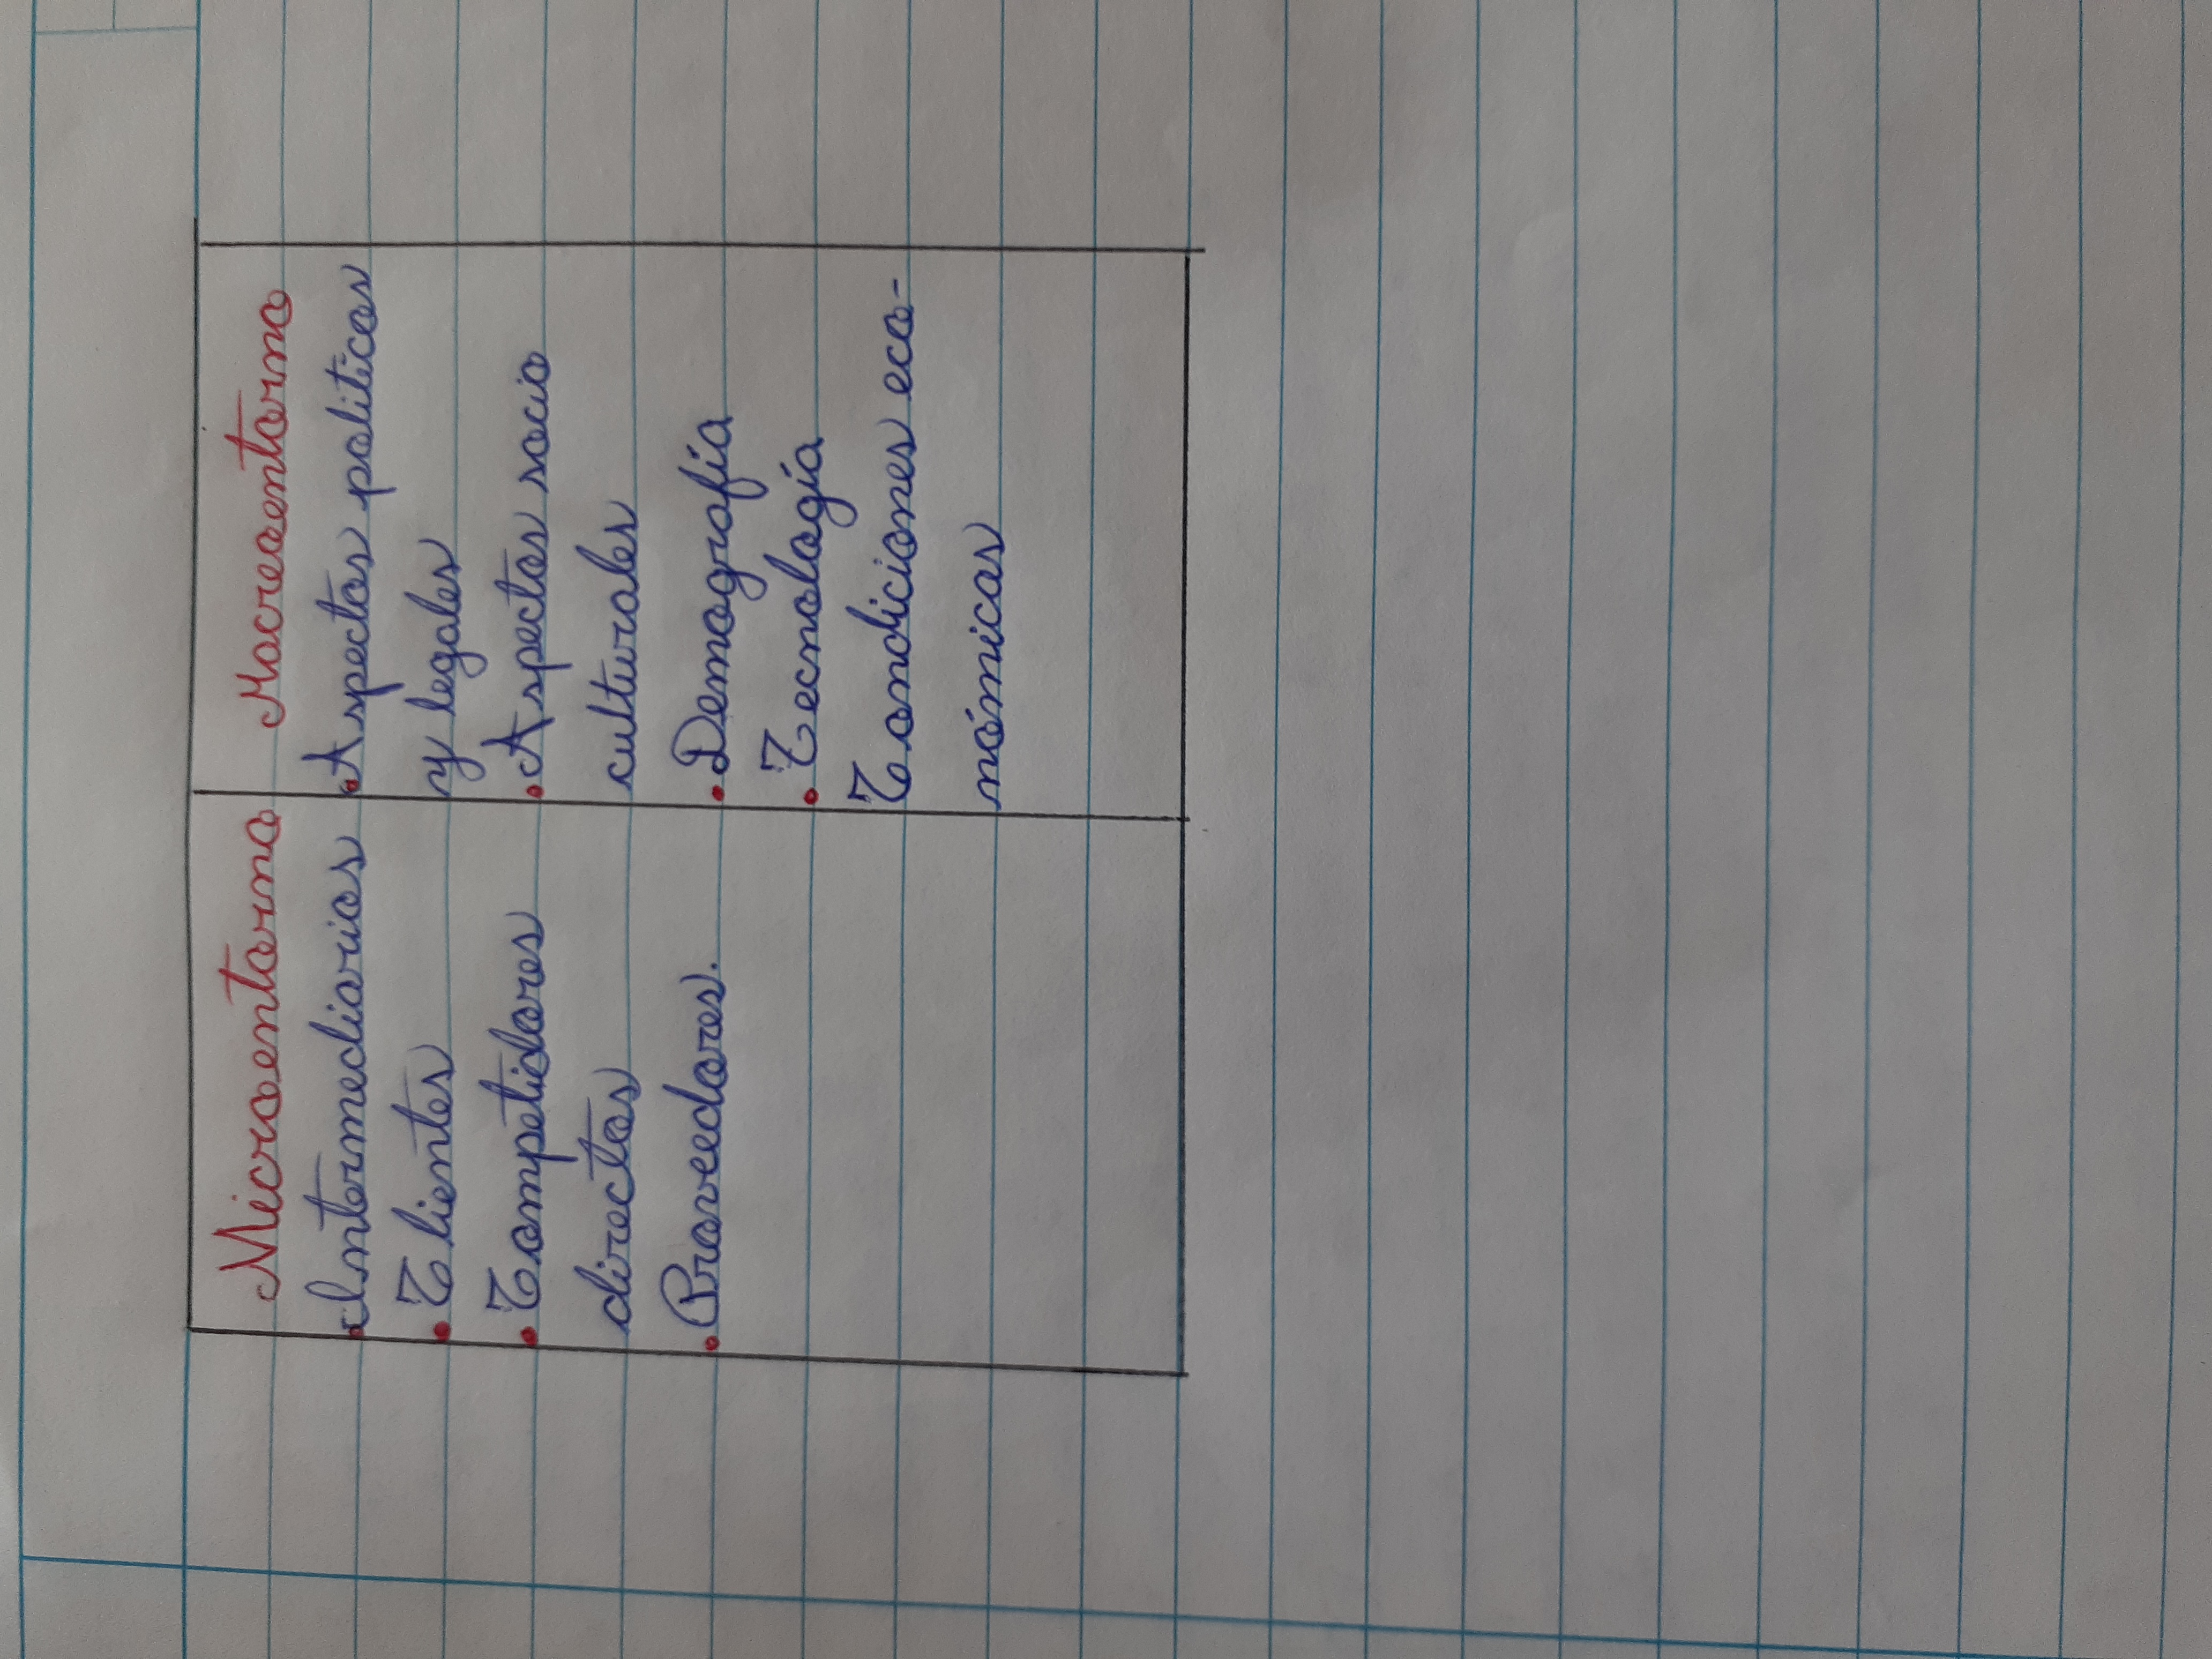 Microentorno
• Intermediarios
• Clientes
• Competidores
directos
• Provedores.
Macroentorno
• Aspectos politicos
y legales
• Aspectos socio
culturales
• Demografía
• Tecnología
Condiciones eco-
nómicas